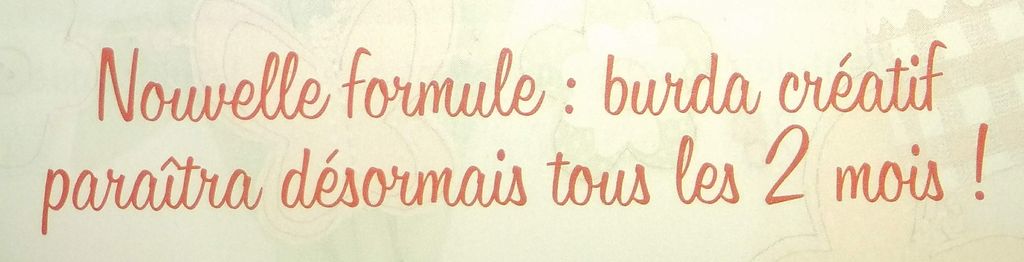 Nouvelle formule : burda créatif
paraîtra désormais tous les 2 mois !